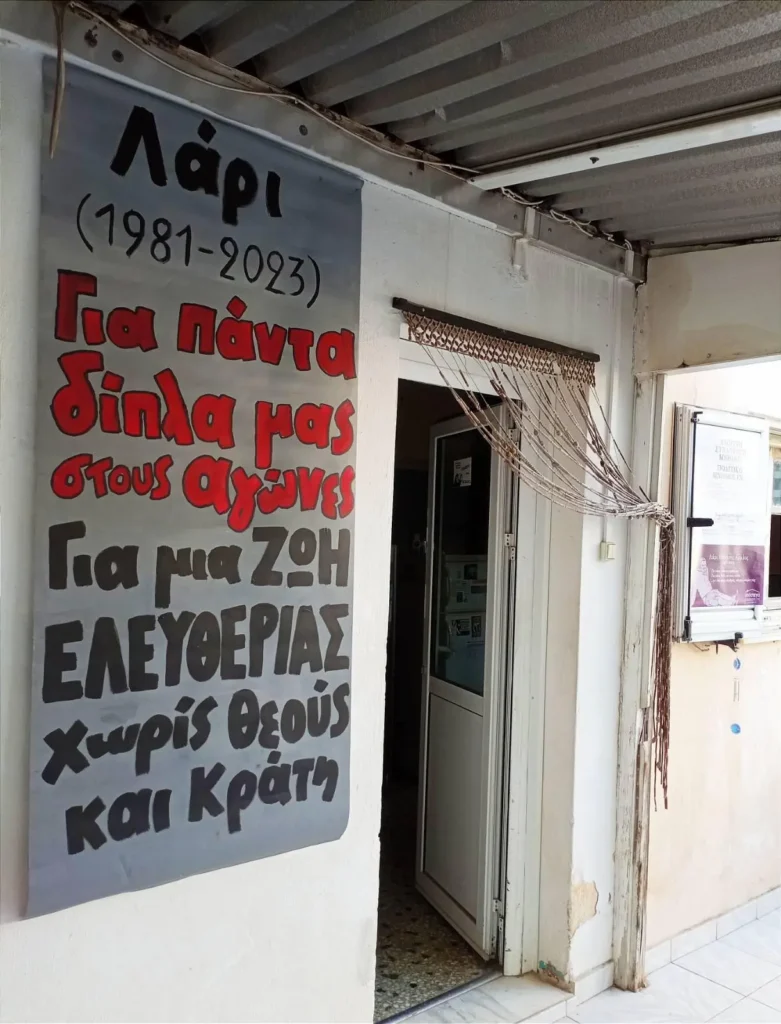 Λάρι
(1981-2023)
Για πάντα
δίπλα μας
στους αγώνες
Για μια ΖΩΗ
ΕΛΕΥΘΕΡΙΑΣ
χωρίς θεούς
και κράτη